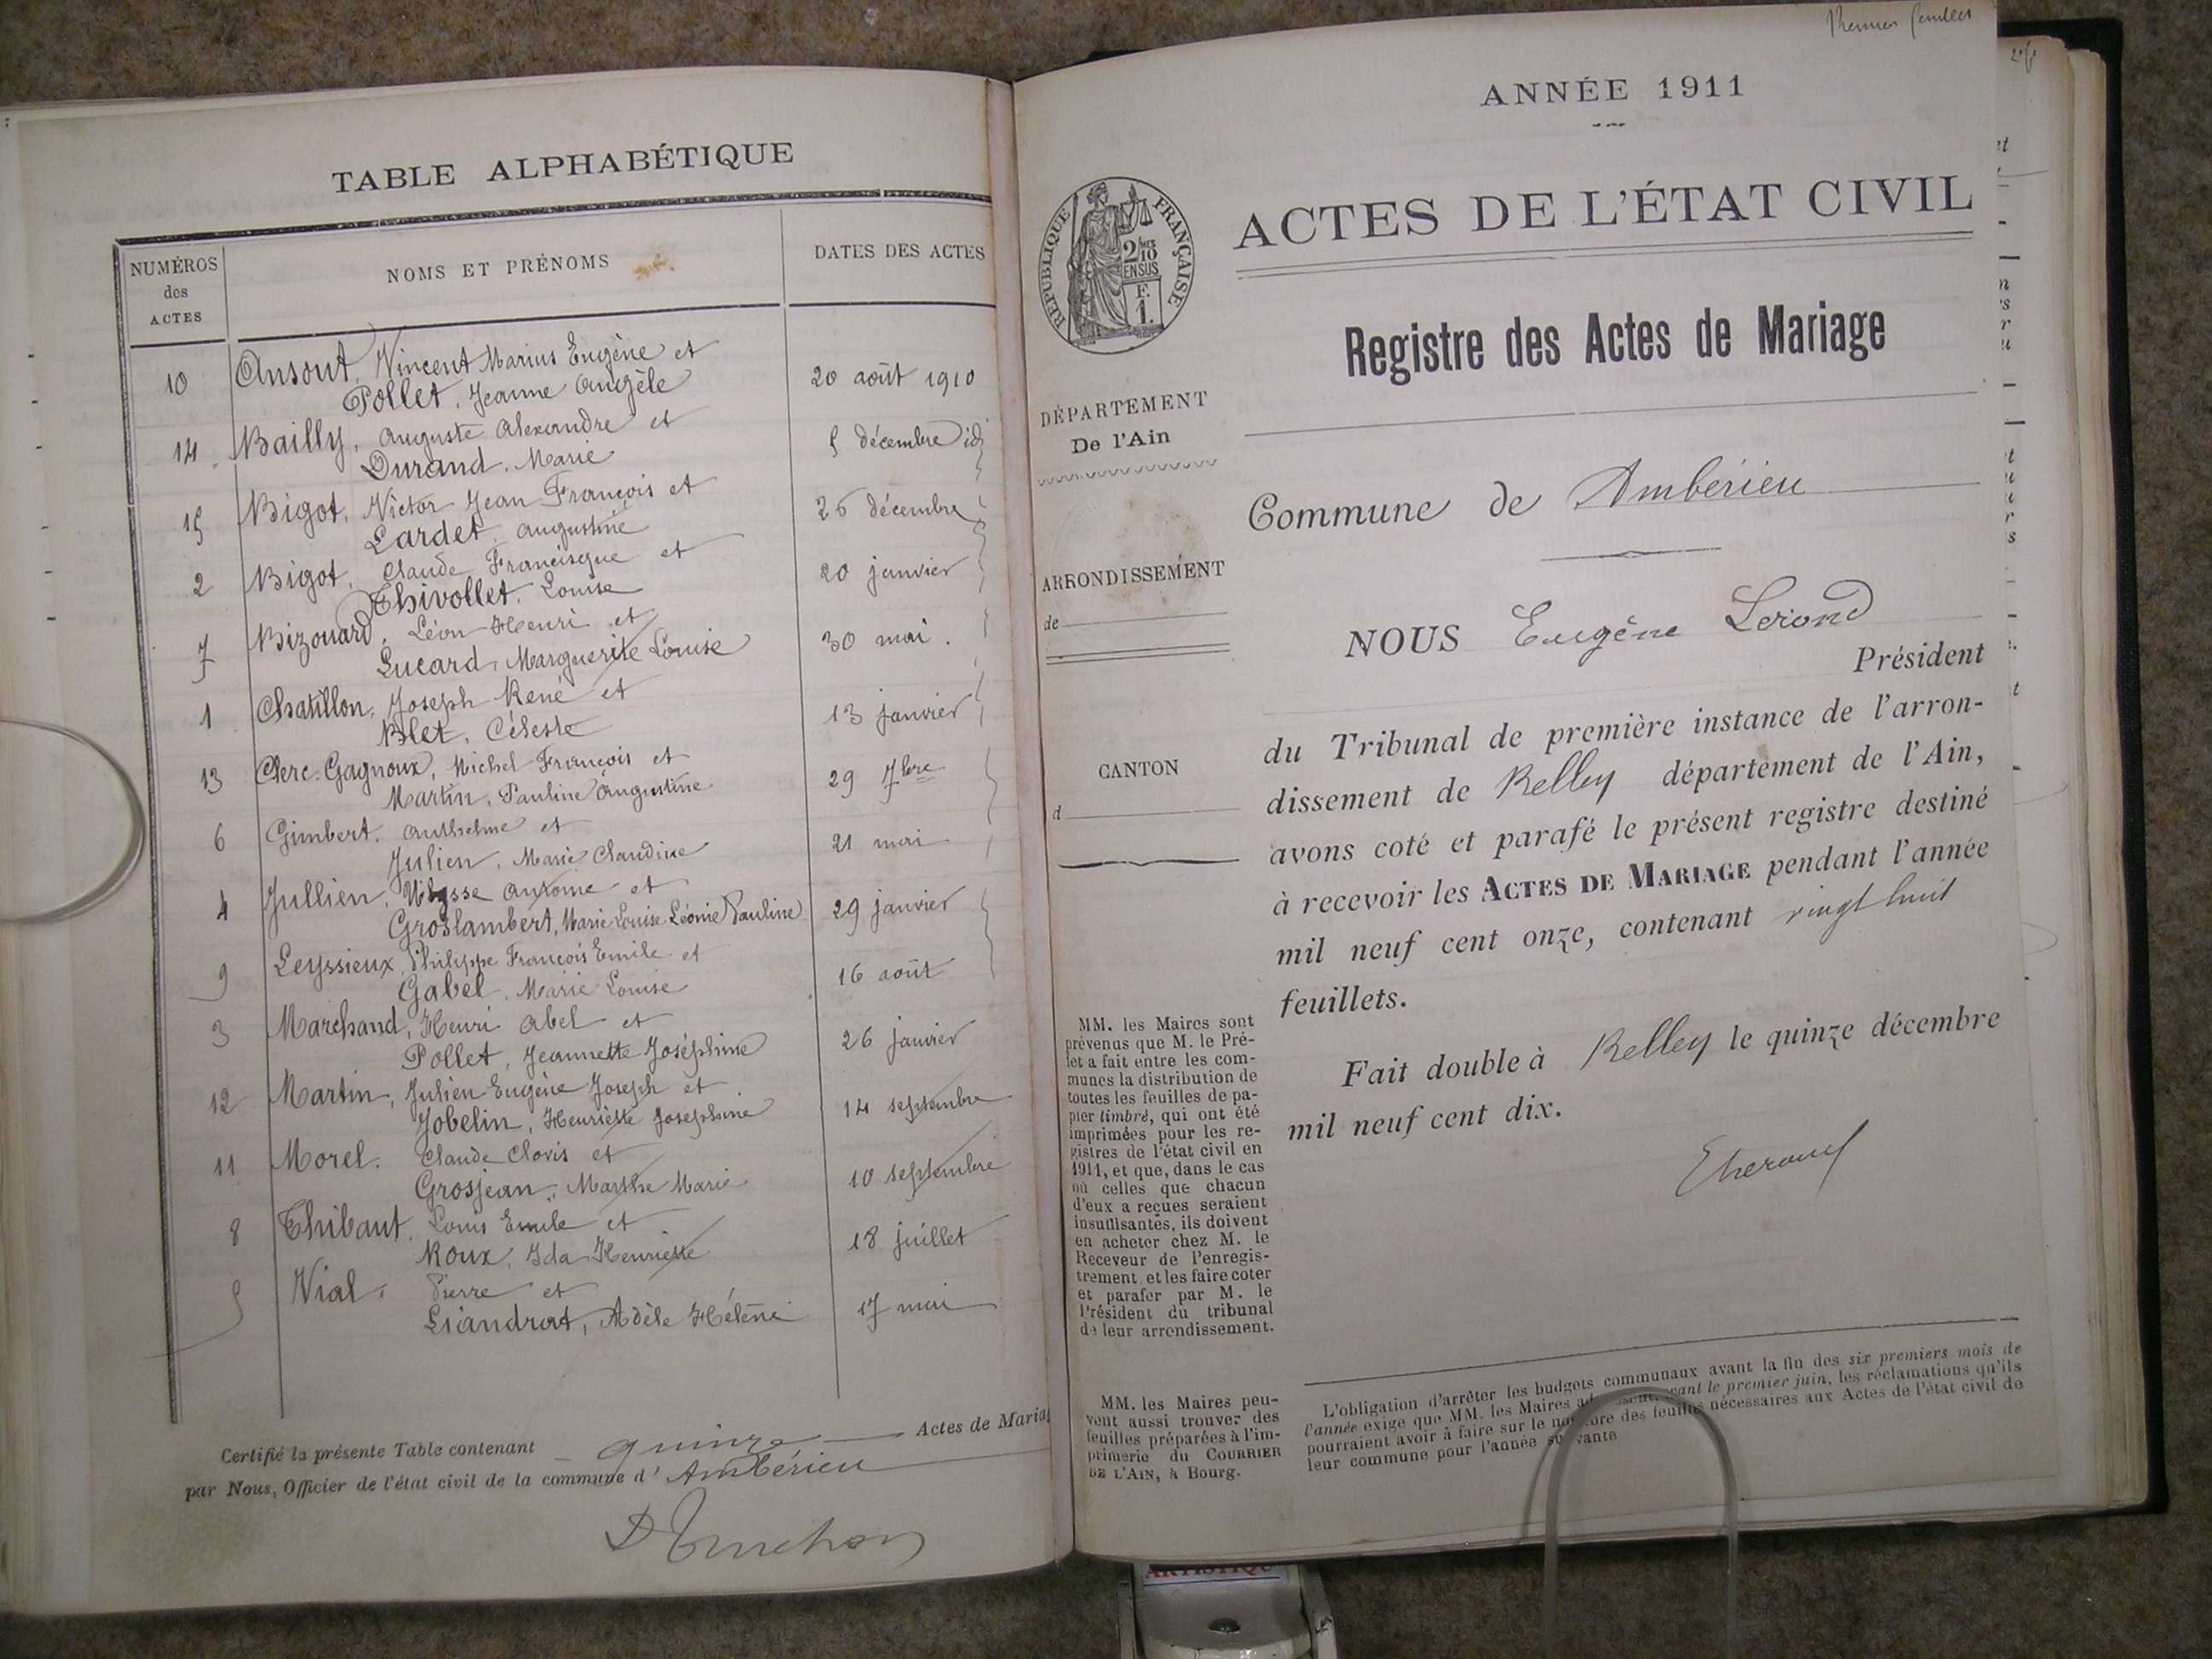 TABLE ALPHABÉTIQUE
NUMÉROS
des
ACTES
NOMS ET PRÉNOMS
DATES DES ACTES
10 Ansout, Vincent Marius Eugène et
Pollet, Jeanne Angèle 20 août 1910
14 Bailly, Auguste Alexandre et
Durand, Marie 5 décembre id
15 Bigot, Victor Jean François et
Lardet, Augustine 26 décembre
2 Bigot, Claude Francisque et
Thivollet, Louise 20 janvier
7 Bizouard, Léon Henri et
Lucard, Marguerite Louise 30 mai
1 Chatillon, Joseph René et
Blet, Céleste 13 janvier
13 Clerc-Gagnoux, Michel François et
Martin, Pauline Augustine 29 7bre
6 Gimbert, Anthelme et
Julien, Marie Claudine 21 mai
4 Jullien, Ulysse Antoine et
Groslambert, Marie Louise Léonie Pauline 29 janvier
9 Leyssieux, Philippe François Emile et
Gabel, Marie Louise 16 août
3 Marchand, Henri Abel et
Pollet, Jeannette Joséphine 26 janvier
12 Martin, Julien Eugène Joseph et
Jobelin, Henriette Joséphine 14 septembre
11 Morel, Claude Clovis et
Grosjean, Marthe Marie 10 septembre
8 Thibaut, Louis Emile et
Roux, Ida Henriette 18 juillet
5 Vial, Pierre et
Liandrat, Adèle Hélène 17 mai
Certifié la présente Table contenant quinze Actes de Maria
par Nous, Officier de l'état civil de la commune d' Ambérieu
Premier feuillet
ANNÉE 1911
ACTES DE L'ÉTAT CIVIL
RÉPUBLIQUE FRANÇAISE
2/10
EN SUS
F.
1.
Registre des Actes de Mariage
DÉPARTEMENT
De l'Ain
ARRONDISSEMENT
de
CANTON
d
Commune de Ambérieu
NOUS Eugène
Président
du Tribunal de première instance de l'arron-
dissement de Belley département de l'Ain,
avons coté et parafé le présent registre destiné
à recevoir les ACTES DE MARIAGE pendant l'année
mil neuf cent onze, contenant vingt huit
feuillets.
Fait double à Belley le quinze décembre
mil neuf cent dix.
MM. les Maires sont
prévenus que M. le Pré-
fet a fait entre les com-
munes la distribution de
toutes les feuilles de pa-
pier timbré, qui ont été
imprimées pour les re-
gistres de l'état civil en
1911, et que, dans le cas
où celles que chacun
d'eux a reçues seraient
insuffisantes, ils doivent
en acheter chez M. le
Receveur de l'enregis-
trement et les faire coter
et parafer par M. le
Président du tribunal
de leur arrondissement.
MM. les Maires peu-
vent aussi trouver des
feuilles préparées à l'im-
primerie du COURRIER
DE L'AIN, à Bourg.
L'obligation d'arrêter les budgets communaux avant la fin des six premiers mois de
l'année exige que MM. les Maires avant le premier juin, les réclamations qu'ils
pourraient avoir à faire sur le nombre des feuilles nécessaires aux Actes de l'état civil de
leur commune pour l'année suivante
ARTISTIQU